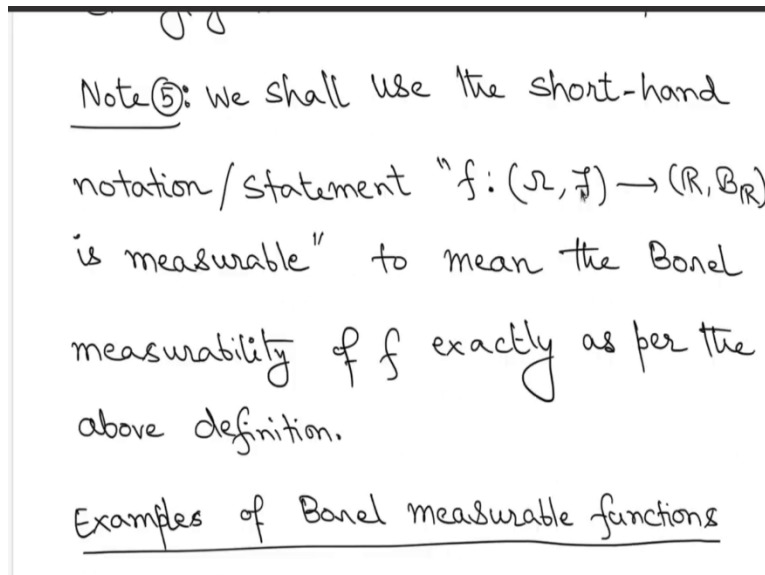 Note ⑤: We shall use the short-hand
notation/statement "f: (Ω, ℱ) → (ℝ, B_ℝ)
is measurable" to mean the Borel
measurability of f exactly as per the
above definition.
Examples of Borel measurable functions